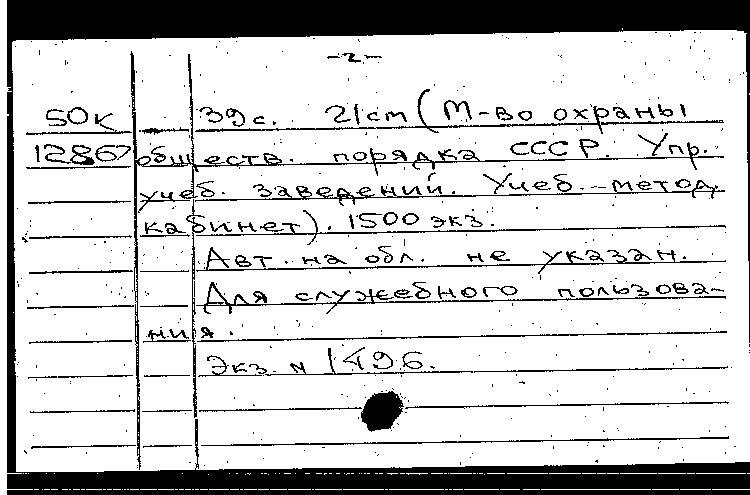 -2-
50к 39 с. 21 cm (М-во охраны
12867 обществ. порядка СССР. Упр.
учеб. заведений. Учеб.-метод.
кабинет). 1500 экз.
Авт. на обл. не указан.
Для служебного пользова-
ния.
Экз. N 1496.